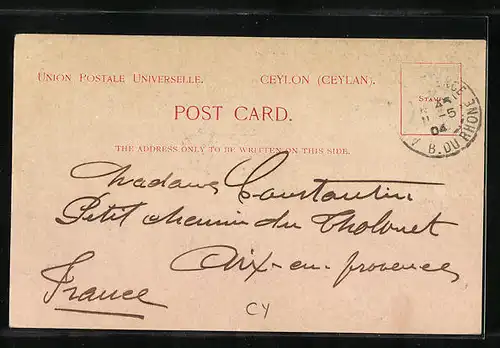 UNION POSTALE UNIVERSELLE. CEYLON (CEYLAN).
POST CARD.
THE ADDRESS ONLY TO BE WRITTEN ON THIS SIDE.
STAMP
-5
04
B. DU RHONE
Madame Constantin
Petit chemin du Tholonet
Aix-en-provence
France
CY